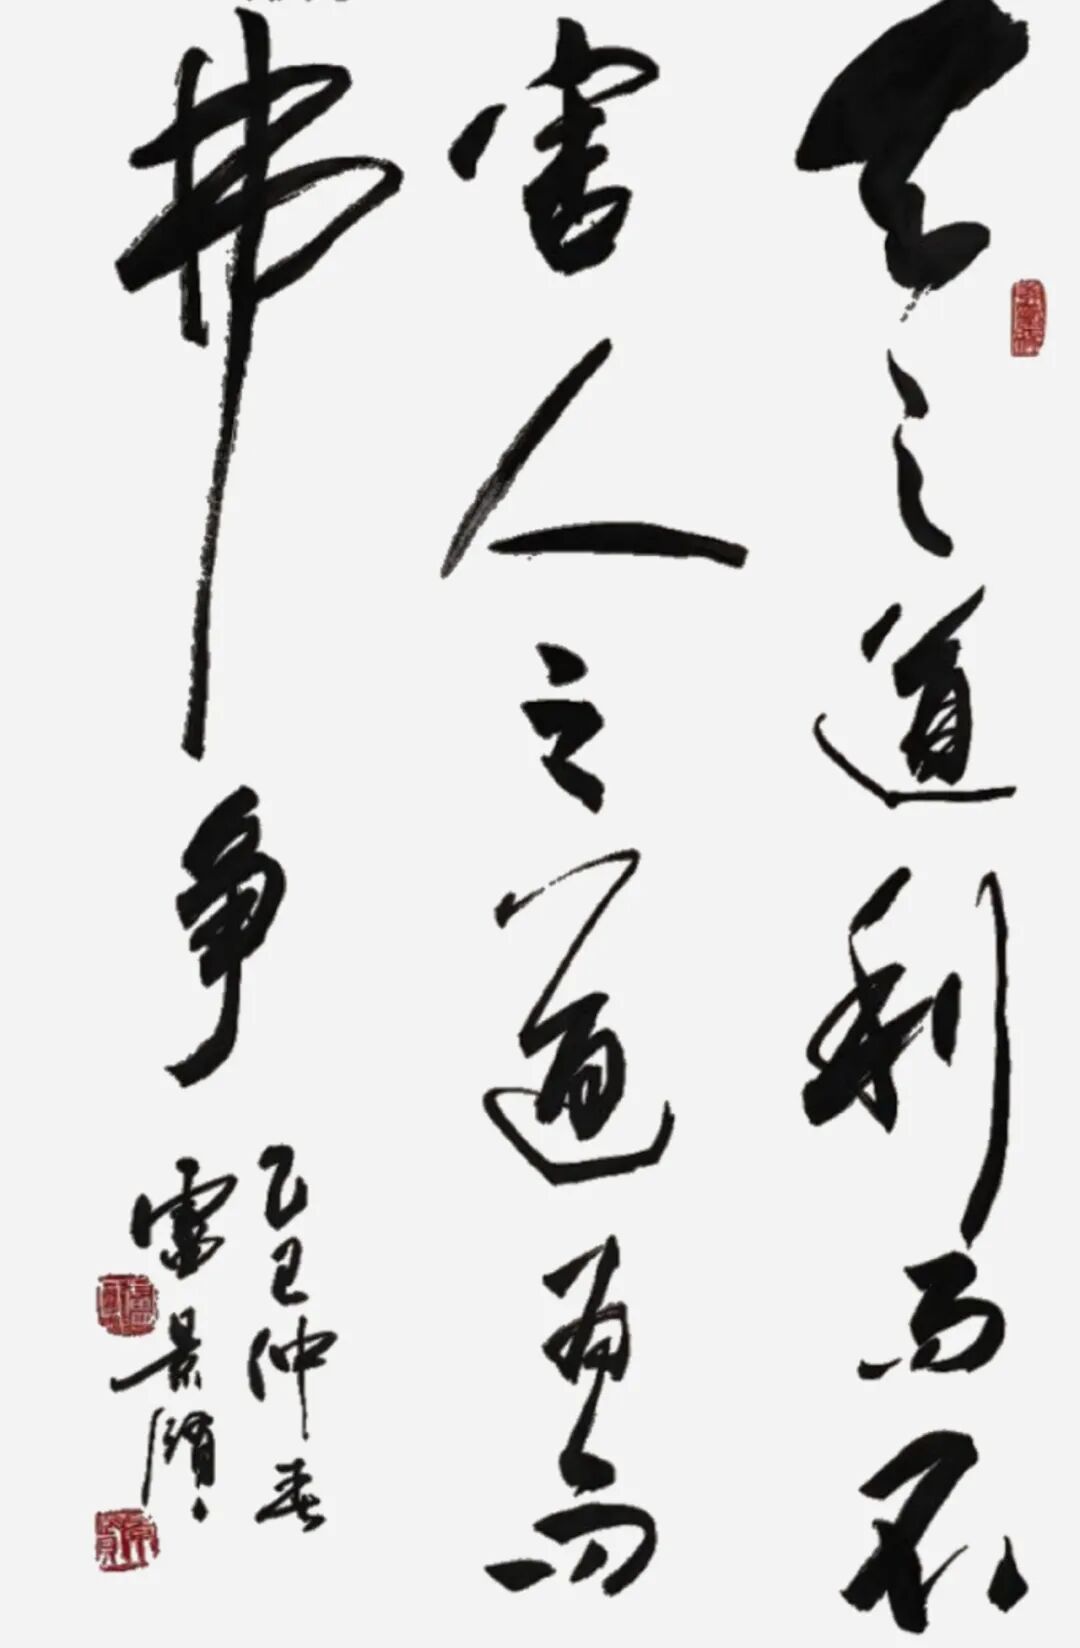 天之道利而不
害人之道為而
弗争
乙巳仲春
雷景